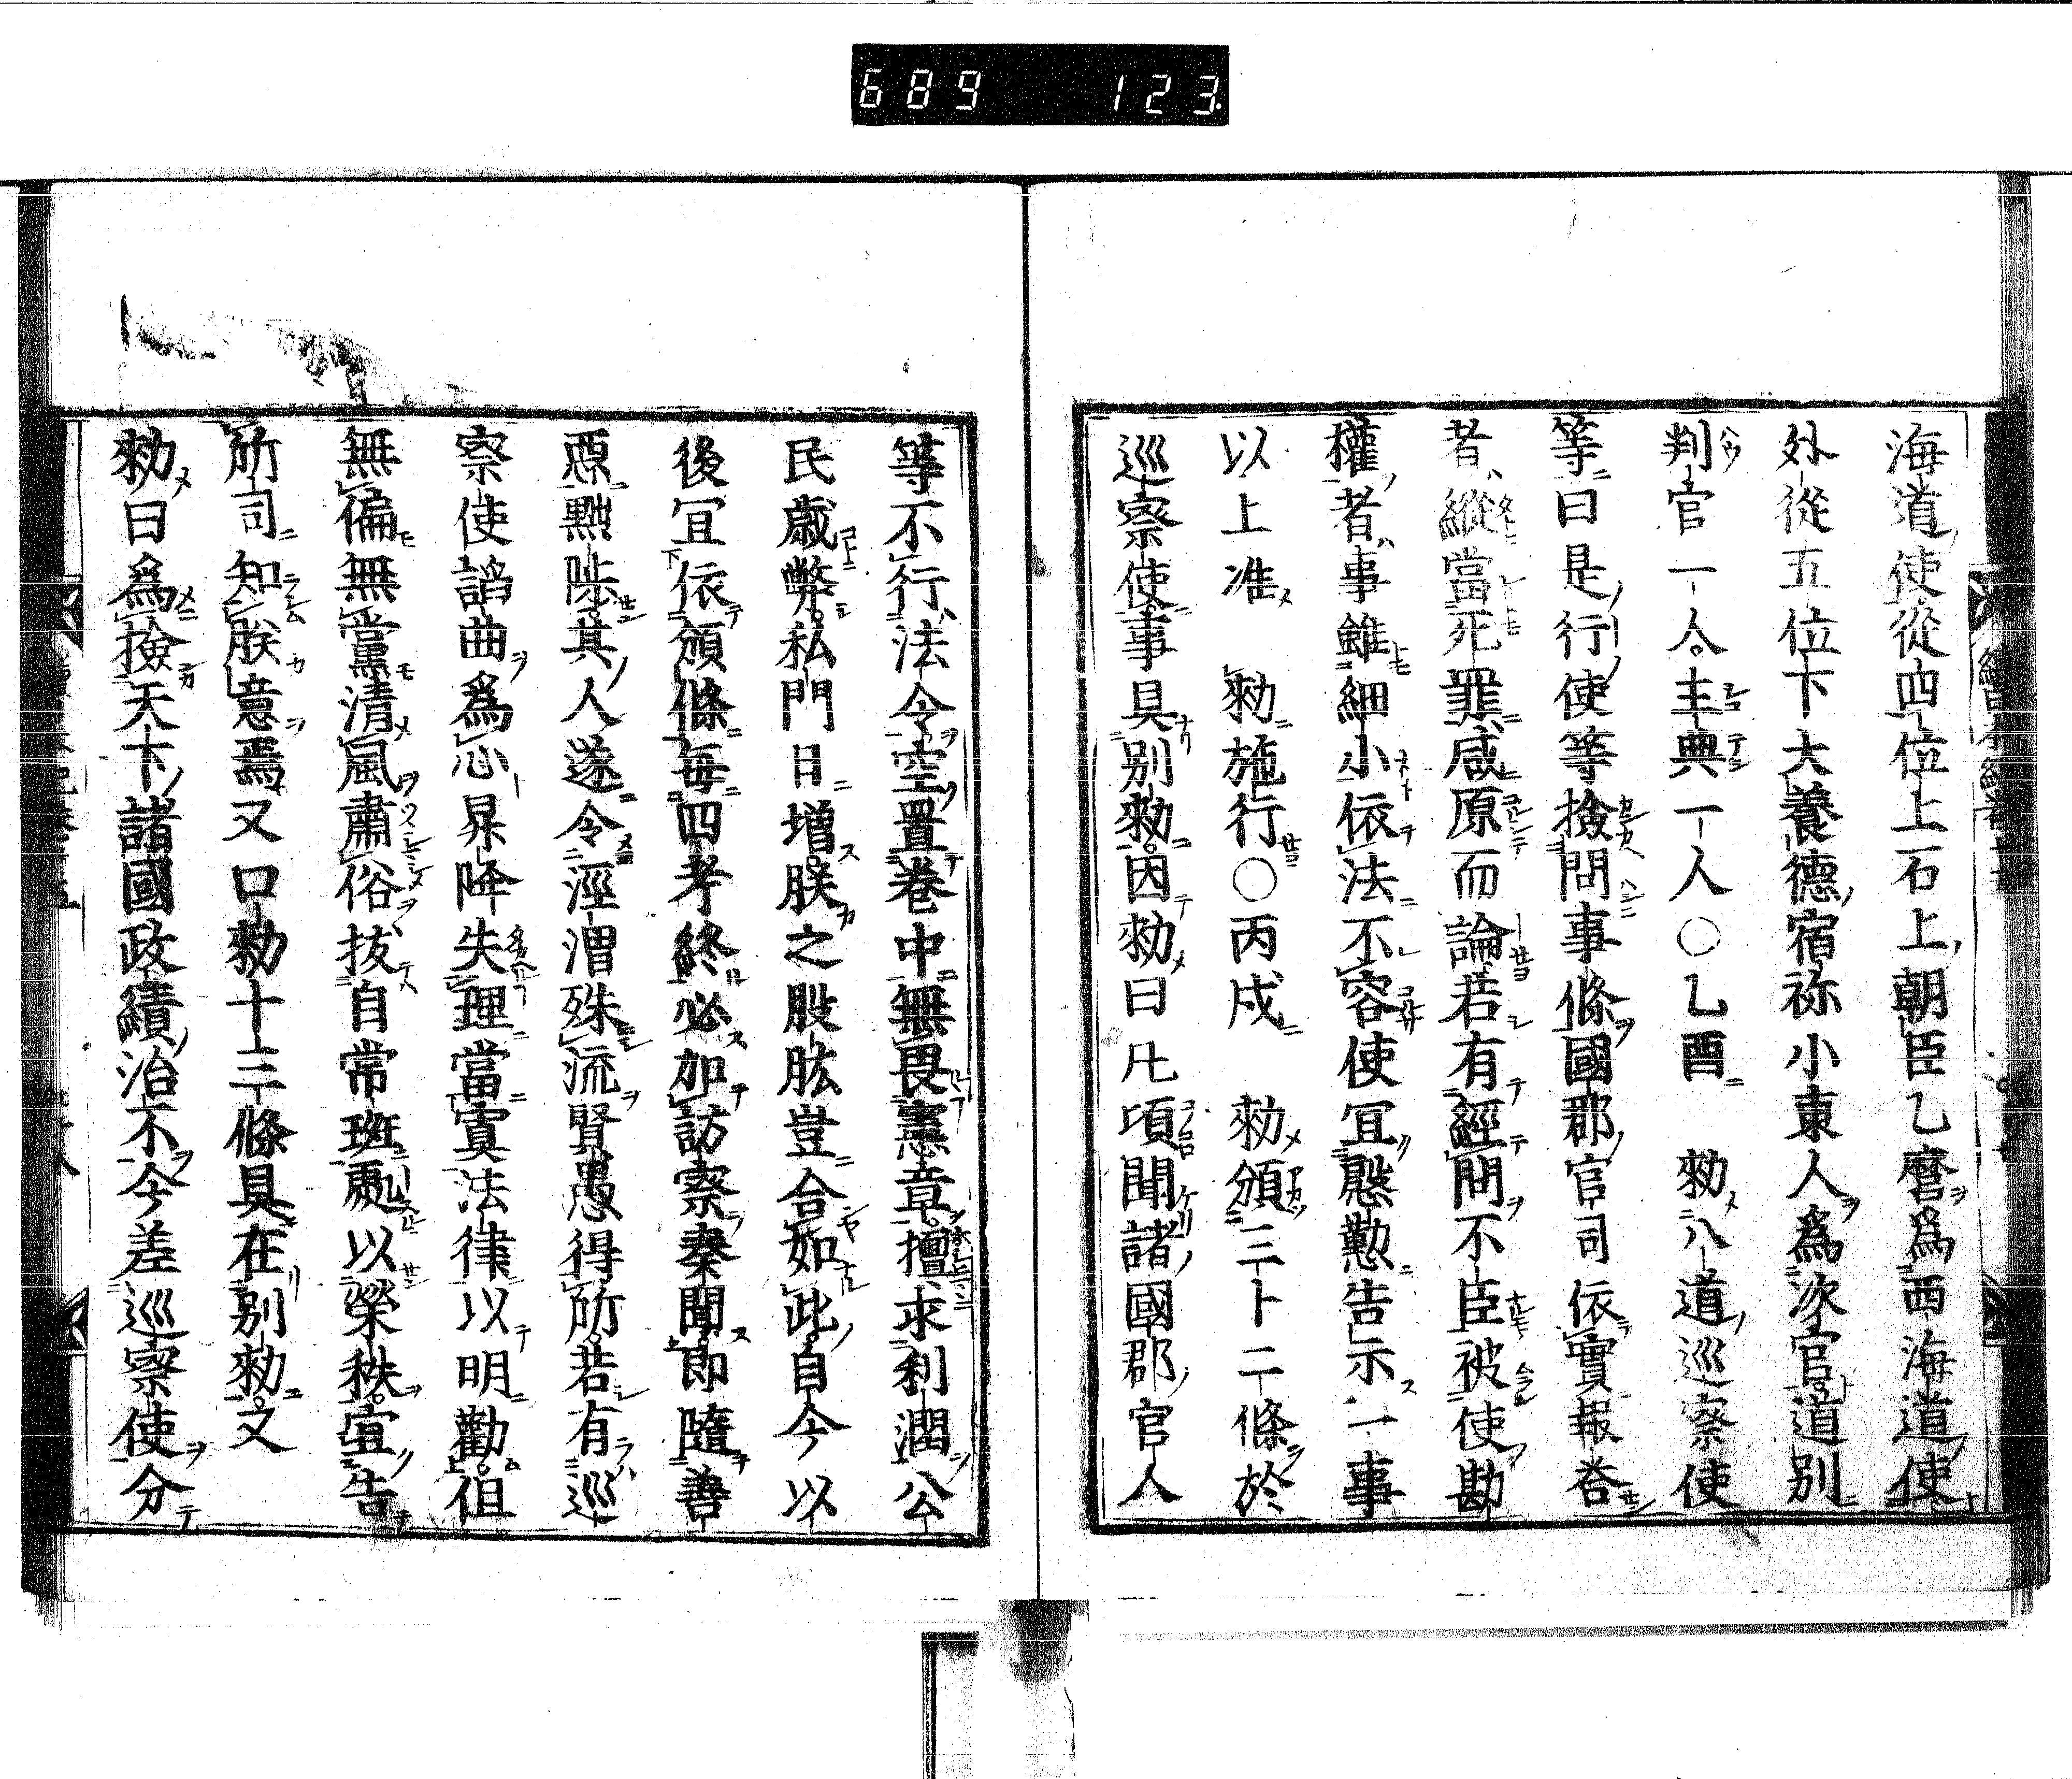 689 123
海道使從四位上石上朝臣乙麿爲西海道使
外從五位下大養德宿祢小東人爲次官道別
判官一人主典一人〇乙酉 勑八道巡察使
等曰是行使等撿問事條國郡官司依實報答
者縱當死罪咸原而論若有經問不臣被使勘
權者事雖細小依法不容使冝慇懃告示一事
以上准 勑施行〇丙戌 勑頒三卜二條於
巡察使事具別勑因勑曰凡頃聞諸國郡官人
等不行法令空置卷中無畏憲章擅求利潤公
民歳弊私門日增朕之股肱豈合如此自今以
後冝依頒條每四考終必加訪察奏聞即隨善
惡黜陟其人遂令涇渭殊流賢愚得所若有巡
察使諂曲爲心昇降失理當寘法律以明勸徂
無偏無黨清風肅俗拔自常班處以榮秩宜告
所司知朕意焉又口勑十三條具在別勑又
勑曰爲撿天下諸國政績治不今差巡察使分